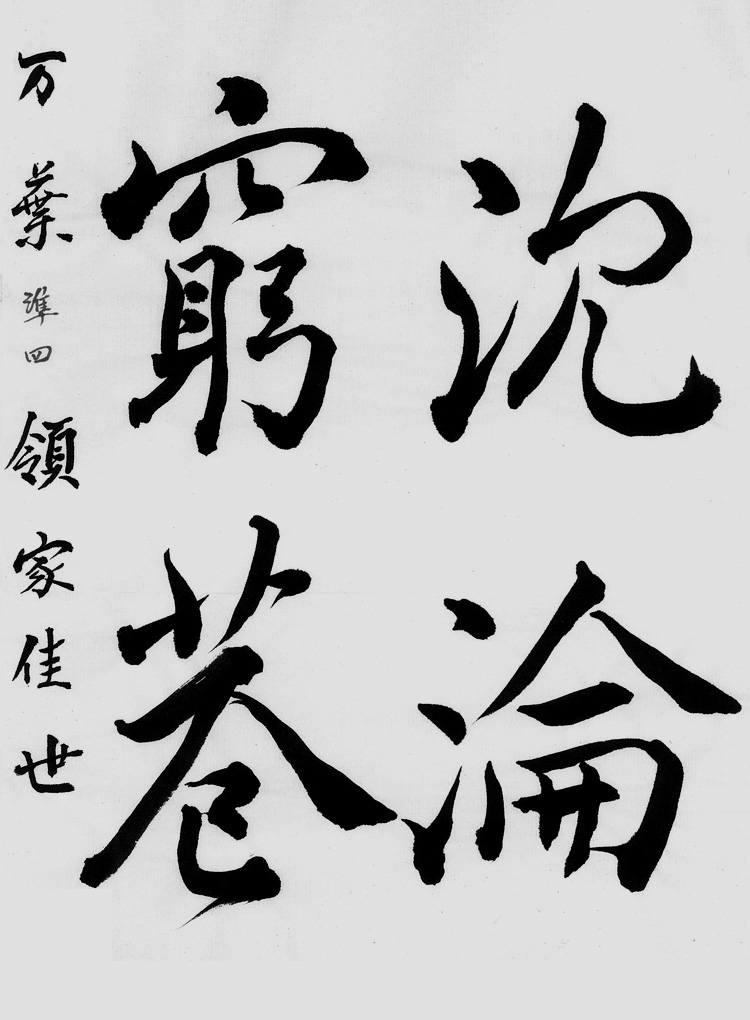 沈淪
窮巷
万葉準四領家佳世